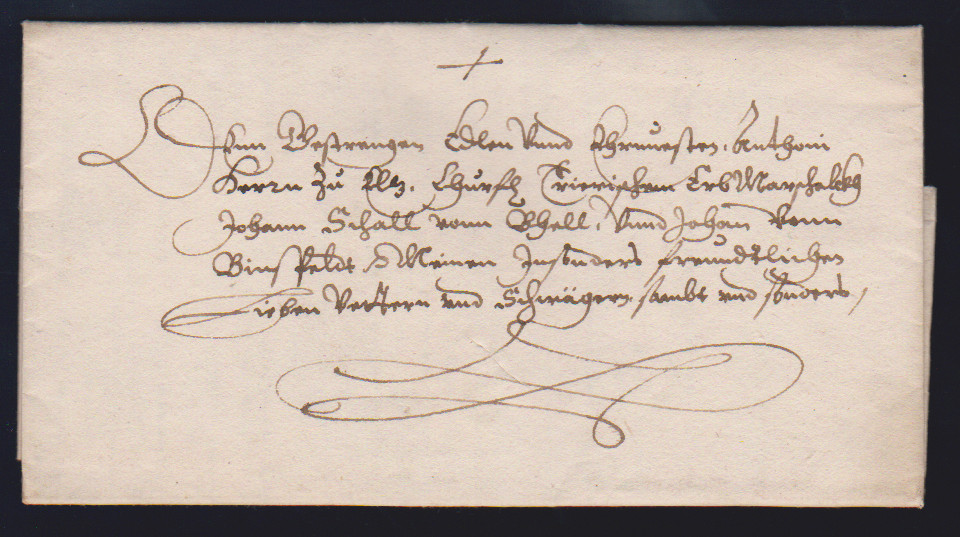 Denn Gestrengen Edlen Vnnd Ehrnuesten, Anthoni
Herrn Zu Eltz, Churfl Trierischem ErbMarschalckh
Johann Schall vonn Bhell, Vnnd Johan Vonn
Binsfeldt, Meinen Insonders freundtlichen
Lieben Vettern vnd Schwägern, sambt vnd sonders,